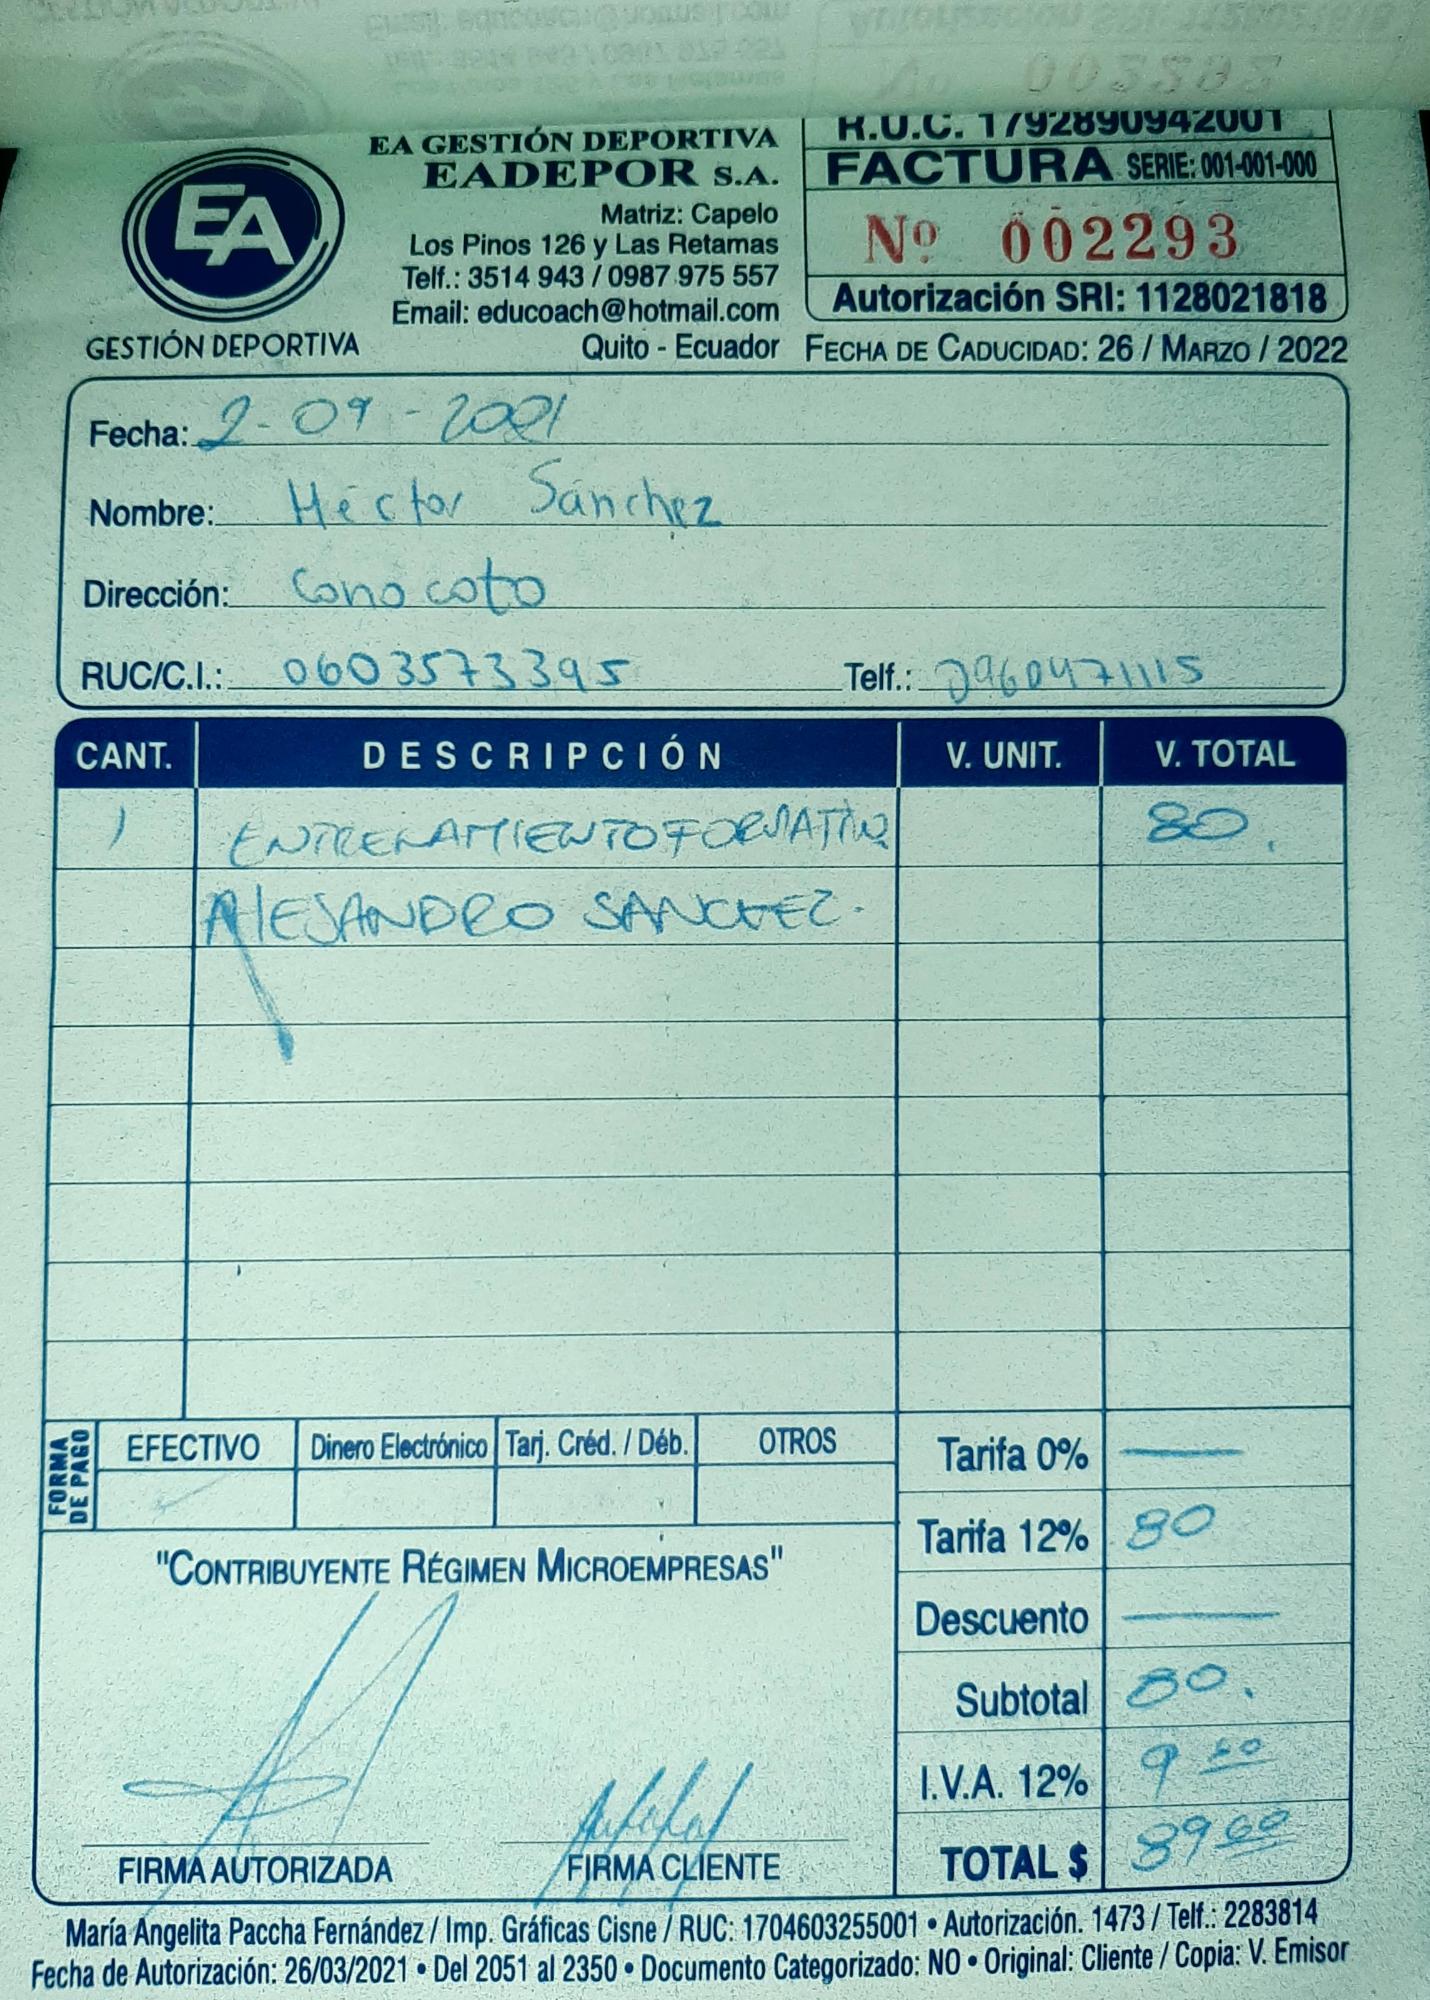 EA
GESTIÓN DEPORTIVA
EA GESTIÓN DEPORTIVA
EADEPOR S.A.
Matriz: Capelo
Los Pinos 126 y Las Retamas
Telf.: 3514 943 / 0987 975 557
Email: educoach@hotmail.com
Quito - Ecuador
R.U.C. 1792890942001
FACTURA SERIE: 001-001-000
Nº 002293
Autorización SRI: 1128021818
FECHA DE CADUCIDAD: 26 / MARZO / 2022
Fecha: 2-09-2021
Nombre: Héctor Sánchez
Dirección: Conocoto
RUC/C.I.: 0603573395 Telf.: 0960471115
CANT. DESCRIPCIÓN V. UNIT. V. TOTAL
1 ENTRENAMIENTO FORMATIVO 80.
AlEJANDRO SANCHEZ.
FORMA DE PAGO
EFECTIVO Dinero Electrónico Tarj. Créd. / Déb. OTROS
Tarifa 0% —
Tarifa 12% 80
"CONTRIBUYENTE RÉGIMEN MICROEMPRESAS"
Descuento —
Subtotal 80.
I.V.A. 12% 9 60
TOTAL $ 89 60
FIRMA AUTORIZADA FIRMA CLIENTE
María Angelita Paccha Fernández / Imp. Gráficas Cisne / RUC: 1704603255001 • Autorización. 1473 / Telf.: 2283814
Fecha de Autorización: 26/03/2021 • Del 2051 al 2350 • Documento Categorizado: NO • Original: Cliente / Copia: V. Emisor